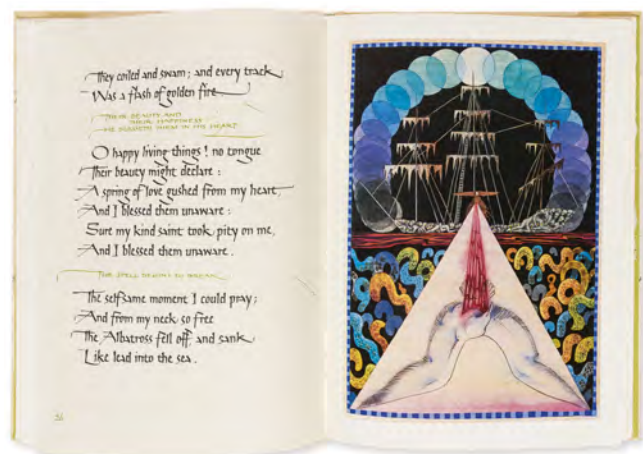 They coiled and swam; and every track
Was a flash of golden fire
THEIR BEAUTY AND
THEIR HAPPINESS
HE BLESSETH THEM IN HIS HEART
O happy living things! no tongue
Their beauty might declare:
A spring of love gushed from my heart,
And I blessed them unaware:
Sure my kind saint took pity on me,
And I blessed them unaware.
THE SPELL BEGINS TO BREAK
The selfsame moment I could pray;
And from my neck so free
The Albatross fell off and sank
Like lead into the sea.